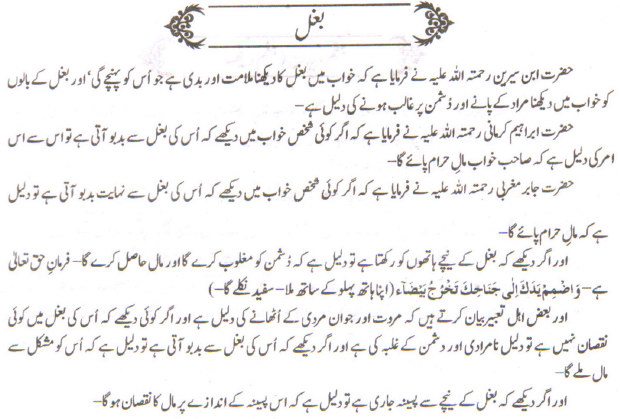 بغل
حضرت ابن سیرین رحمتہ اللہ علیہ نے فرمایا ہے کہ خواب میں بغل کا دیکھنا ملامت اور بدی ہے جو اُس کو پہنچے گی‘ اور بغل کے بالوں
کو خواب میں دیکھنا مراد کے پانے اور دُشمن پر غالب ہونے کی دلیل ہے–
حضرت ابراہیم کرمانی رحمتہ اللہ علیہ نے فرمایا ہے کہ اگر کوئی شخص خواب میں دیکھے کہ اُس کی بغل سے بدبو آتی ہے تو اس سے اس
امر کی دلیل ہے کہ صاحب خواب مالِ حرام پائے گا–
حضرت جابر مغربی رحمتہ اللہ علیہ نے فرمایا ہے کہ اگر کوئی شخص خواب میں دیکھے کہ اُس کی بغل سے نہایت بدبو آتی ہے تو دلیل
ہے کہ مالِ حرام پائے گا–
اور اگر دیکھے کہ بغل کے نیچے ہاتھوں کو رکھتا ہے تو دلیل ہے کہ دُشمن کو مغلوب کرے گا اور مال حاصل کرے گا– فرمانِ حق تعالیٰ
ہے– وَاضْمُمْ يَدَكَ اِلٰى جَنَاحِكَ تَخْرُجْ بَيْضَآءَ (اپنا ہاتھ پہلو کے ساتھ ملا– سفید نکلے گا–)
اور بعض اہل تعبیر بیان کرتے ہیں کہ مروت اور جوان مردی کے اُٹھانے کی دلیل ہے اور اگر کوئی دیکھے کہ اُس کی بغل میں کوئی
نقصان نہیں ہے تو دلیل نامرادی اور دشمن کے غلبہ کی ہے اور اگر دیکھے کہ اُس کی بغل سے بدبو آتی ہے تو دلیل ہے کہ اُس کو مشکل سے
مال ملے گا–
اور اگر دیکھے کہ بغل کے نیچے سے پسینہ جاری ہے تو دلیل ہے کہ اس پسینہ کے اندازے پر مال کا نقصان ہو گا–